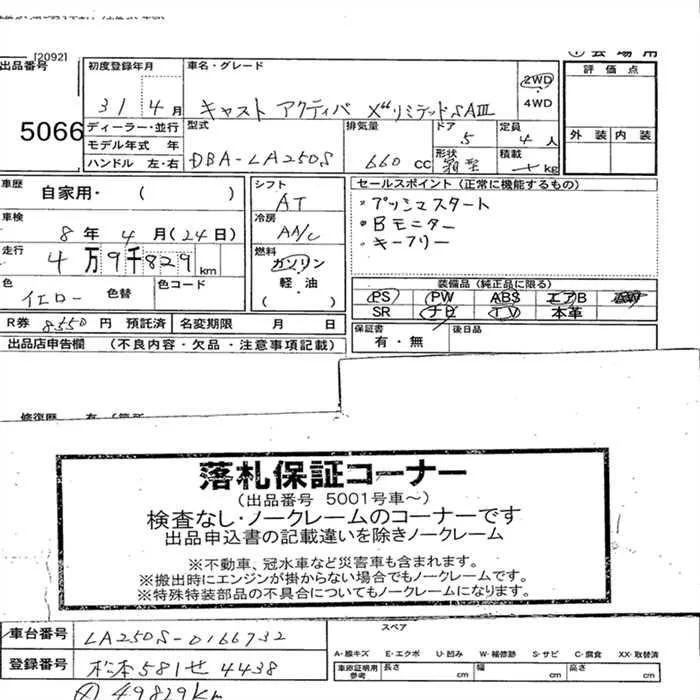 [2092]
出品番号
5066
初度登録年月
31 4月
車名・グレード
キャスト アクティバ X"リミテッドSAⅢ
2WD
4WD
評価点
外装 内装
ディーラー・並行
モデル年式 年
ハンドル 左・右
型式
DBA-LA250S
排気量
660 cc
ドア
5
形状
箱型
定員
4人
積載
kg
車歴
自家用・( )
車検
8年 4月(24日)
走行
4万9千829km
色
イエロー
色替
色コード
シフト
AT
冷房
AA/C
燃料
ガソリン
軽・油
( )
セールスポイント (正常に機能するもの)
・プッシュスタート
・Bモニター
・キーフリー
装備品(純正品に限る)
PS PW ABS エアB AW
SR ナビ TV 本革
R券 8550円 預託済
名変期限 月 日
保証書
有・無
後日品
出品店申告欄 (不良内容・欠品・注意事項記載)
落札保証コーナー
(出品番号 5001号車~)
検査なし・ノークレームのコーナーです
出品申込書の記載違いを除きノークレーム
※不動車、冠水車など災害車も含まれます。
※搬出時にエンジンが掛からない場合でもノークレームです。
※特殊特装部品の不具合についてもノークレームになります。
車台番号
LA250S-0166732
登録番号
松本581せ4438
49829Km
スペア
A・線キズ E・エクボ U・凹み W・補修跡 S・サビ C・腐食 XX・取替済
車庫証明用参考
長さ cm
幅 cm
高さ cm